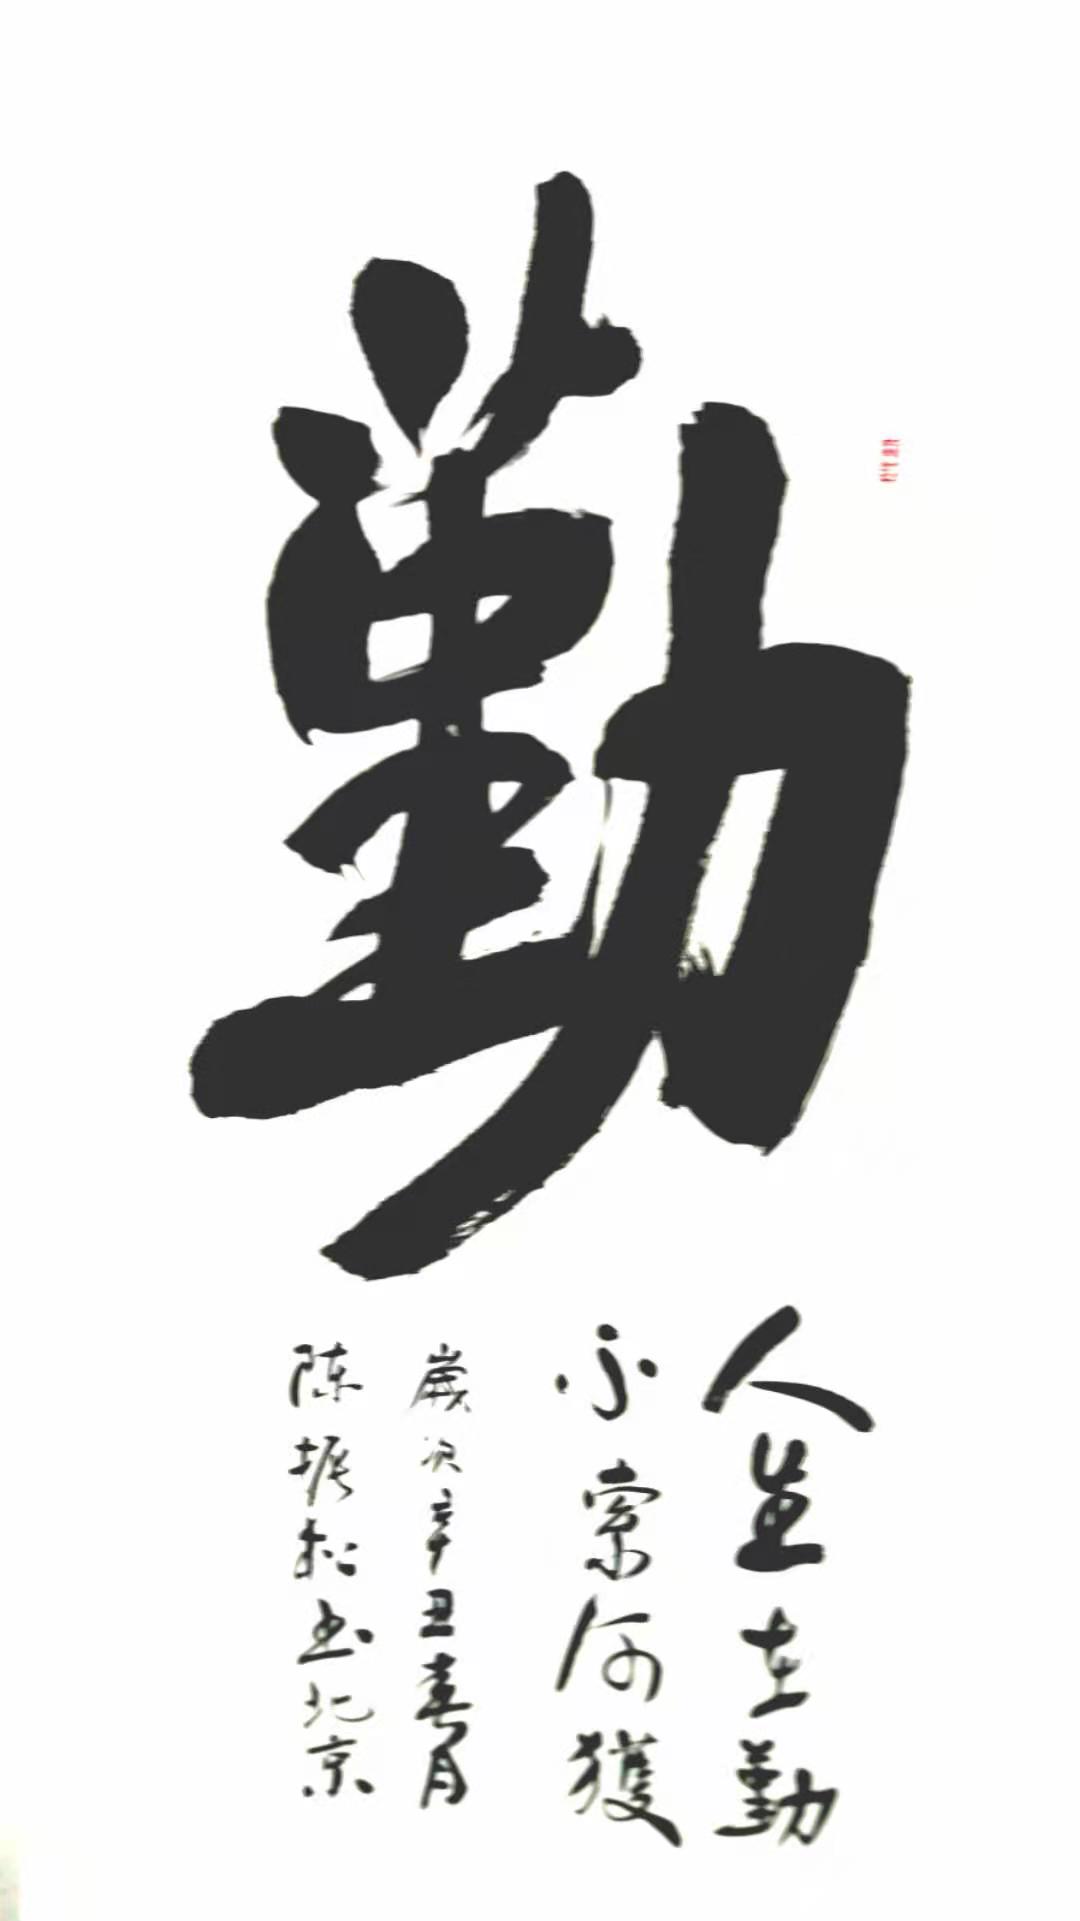 勤
人生在勤
不索何獲
歲次辛丑春月
陈振松书北京